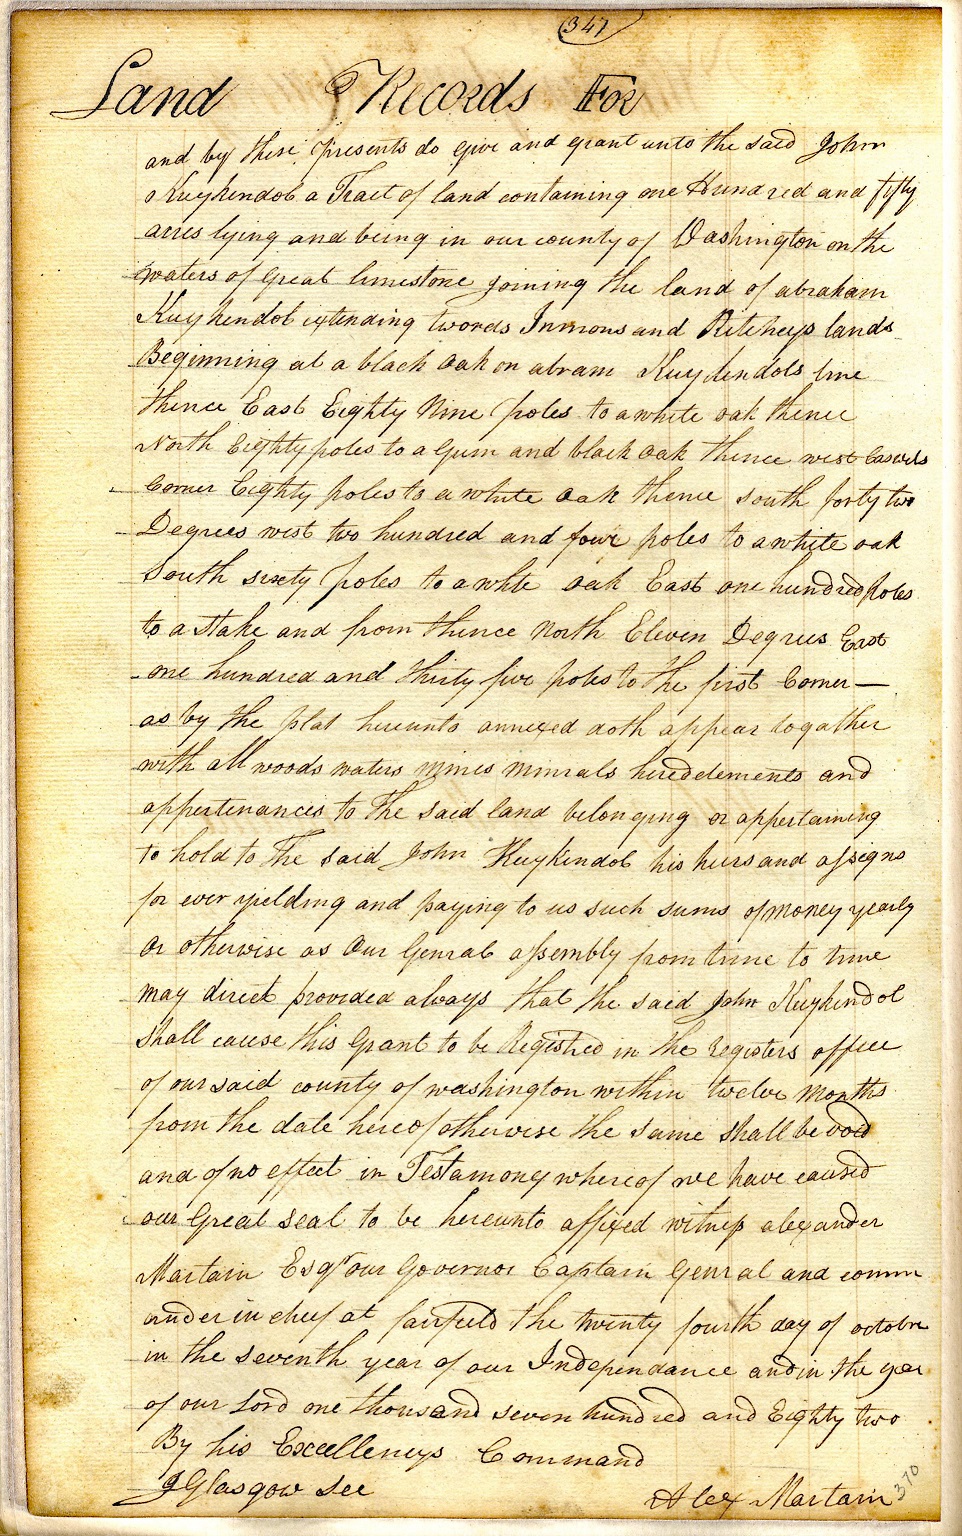 347
Land Records For
and by these presents do give and grant unto the said John
Kuykendol a Tract of land containing one Hundred and fifty
acres lying and being in our county of Washington on the
waters of great limestone joining the land of abraham
Kuykendol extending twords Inmons and Ritcheys lands
Beginning at a black oak on abram Kuykendols line
thence East Eighty Nine poles to a white oak thence
North Eighty poles to a gum and black oak thence west
Corner Eighty poles to a white oak thence south forty two
Degrees west two hundred and four poles to a white oak
South sixty poles to a white oak East one hundred poles
to a stake and from thence North Eleven Degrees East
one hundred and thirty five poles to the first Corner —
as by the plat hereunto annexed doth appear togather
with all woods waters mines minrals heredelements and
appertinances to the said land belonging or appertaining
to hold to the said John Kuykendol his heirs and assigns
for ever yielding and paying to us such sums of money yearly
or otherwise as our Genral assembly from time to time
may direct provided always that the said John Kuykindol
shall cause this Grant to be Registred in the Registers office
of our said county of washington within twelve months
from the date hereof otherwise the same shall be void
and of no effect in Testamony whereof we have caused
our Great seal to be hereunto affixed witness alexander
Martain Esqr our Governor Captain Genral and comm
ander in cheif at fairfield the twenty fourth day of octobre
in the seventh year of our Independance and in the year
of our Lord one thousand seven hundred and Eighty two
By his Excellencys Command
J Glasgow Sec
Alex Martain
370